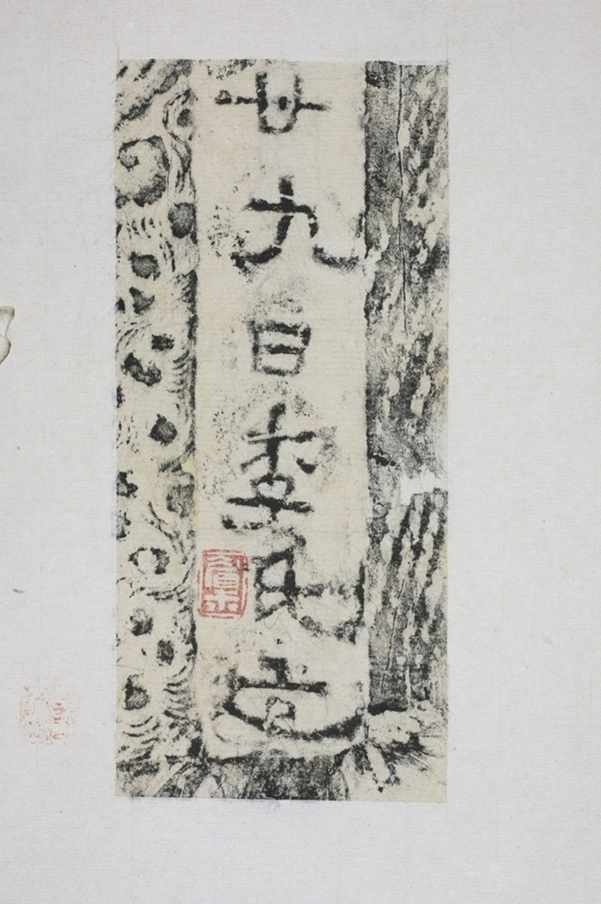 廿九日李氏造